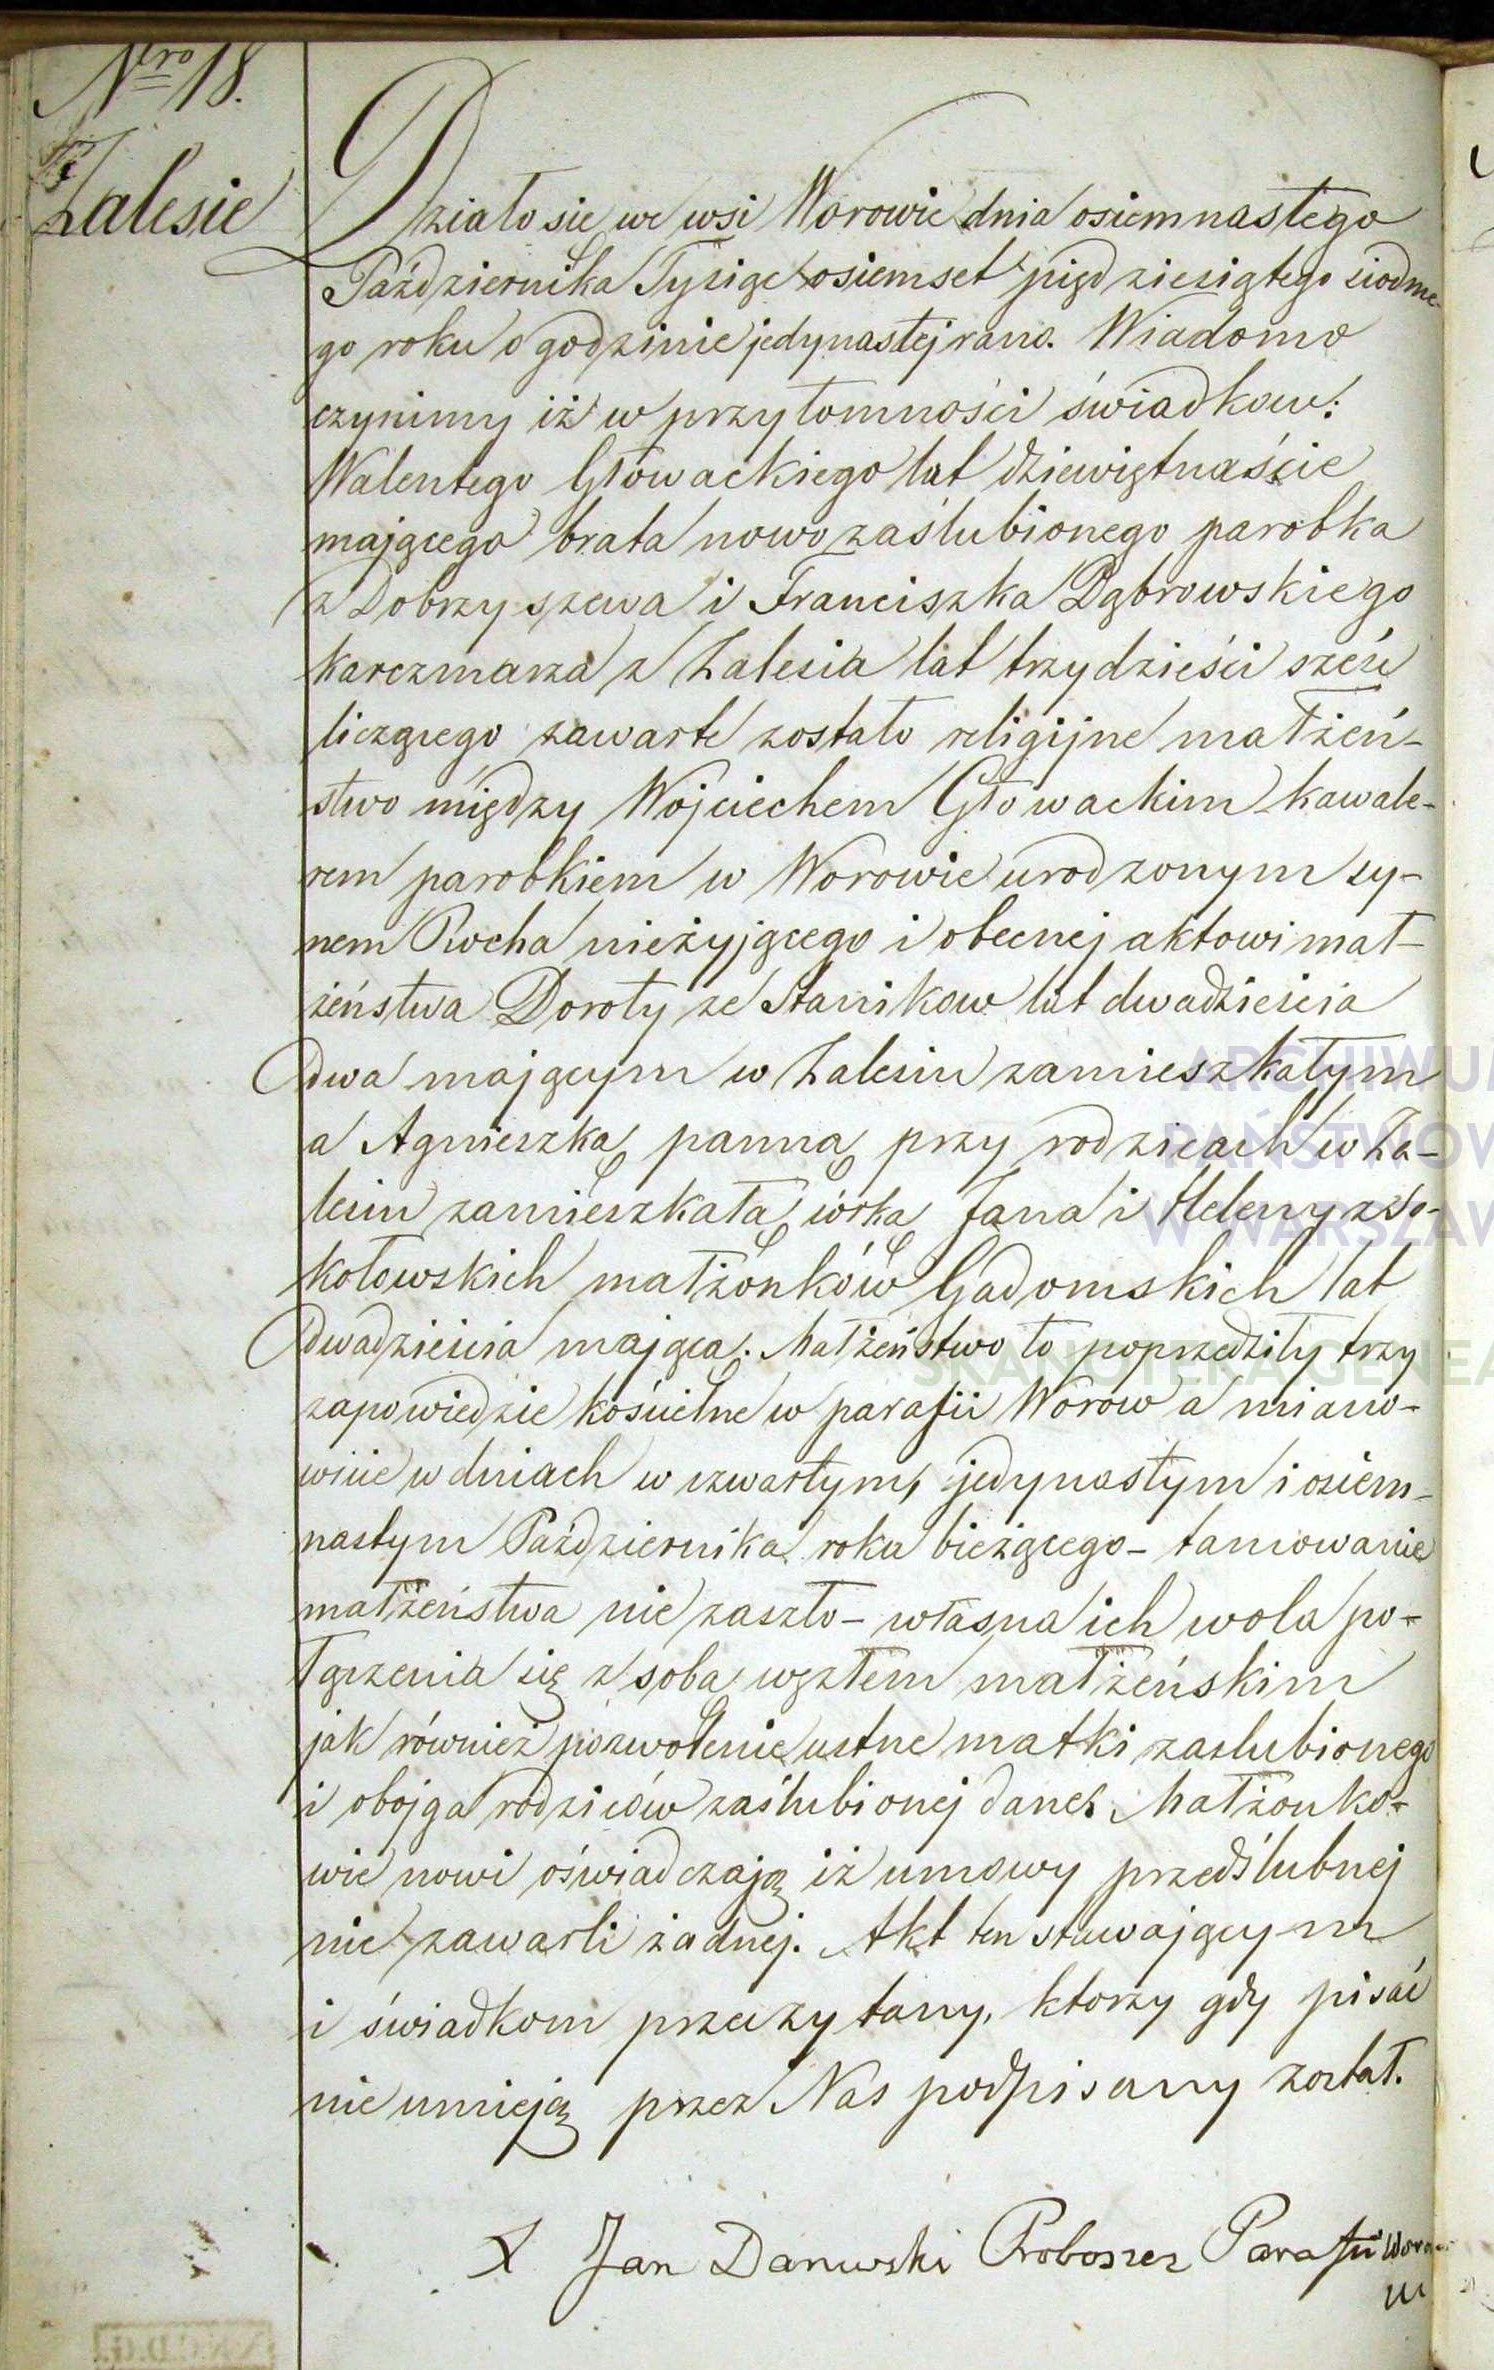 Nro 18.
Zalesie
Działo sie we wsi Worowie dnia osiemnastego
Października Tysiąc osiemset pięd ziesiątego siodme-
go roku o godzinie jedynastej rano. Wiadomo
czynimy iż w przytomności świadkow:
Walentego Głowackiego lat dziewiętnaście
mającego brata nowo zaślubionego parobka
z Dobryszewa i Franciszka Dąbrowskiego
karczmarza z Zalesia lat trzydzieści sześć
liczącego zawarte zostało religijne małżeń-
stwo między Wojciechem Głowackim kawale-
rem parobkiem w Worowie urodzonym sy-
nem Rocha nieżyjącego i obecnej aktowi mał-
żeństwa Doroty ze Stanikow lat dwadzieścia
dwa mającym w Zalesiu zamieszkałym
a Agnieszką panną przy rodzicach w Za-
lesiu zamieszkałą córką Jana i Heleny z So-
kołowskich małżonków Gadomskich lat
dwadzieścia mającą. Małżeństwo to poprzedziły trzy
zapowiedzie kościelne w parafii Worow a miano-
wicie w dniach w czwartym, jedynastym i osiem-
nastym Października roku bieżącego - tamowanie
małżeństwa nie zaszło - własna ich wola po-
łączenia się z sobą węzłem małżeńskim
jak również pozwolenie ustne matki zaslubionego
i obojga rodziców zaślubionej dane. Małżonko-
wie nowi oświadczają iż umowy przedślubnej
nie zawarli żadnej. Akt ten stawającym
i świadkom przeczytany, ktorzy gdy pisać
nie umieją przez Nas podpisany został.
X Jan Danuski Proboszcz Parafii
ARCHIWUM
PAŃSTWOW
W WARSZAW
SKANOTEKA GENEA